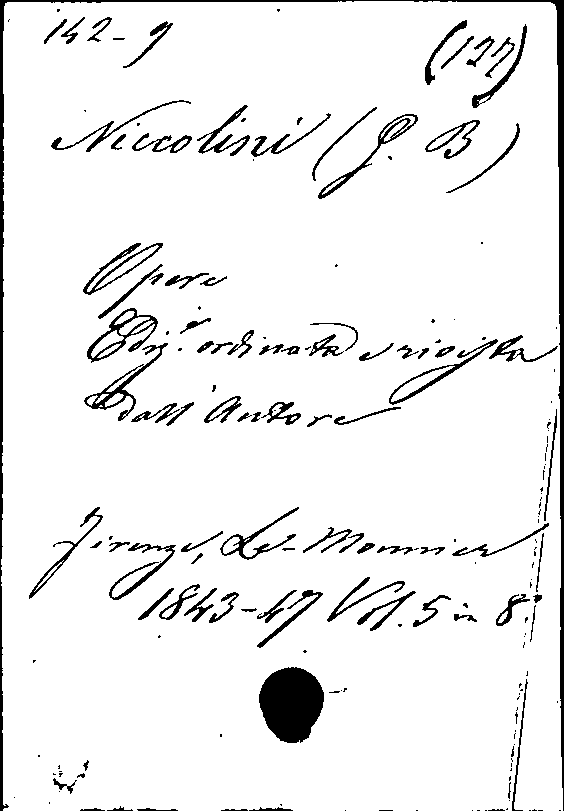 142-9
(127)
Niccolini (G. B)
Opere
Ediz.e ordinata e rivista
dall'Autore
Firenze, Le-Monnier
1843-47 Vol. 5 in 8.°